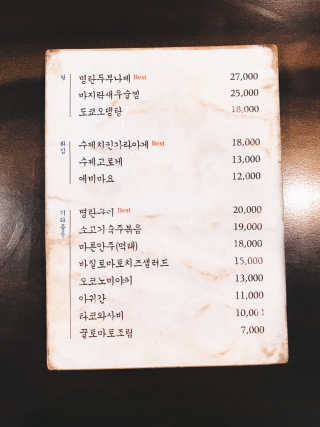 탕
명란두부나베 Best 27,000
바지락새우술찜 25,000
도쿄오뎅탕 18,000
튀김
수제치킨가라아게 Best 18,000
수제고로케 13,000
에비마요 12,000
기타돌우
명란구이 Best 20,000
소고기 숙주볶음 19,000
마른안주(먹태) 18,000
바질토마토치즈샐러드 15,000
오코노미야키 13,000
아귀간 11,000
타코와사비 10,000
꿀토마토조림 7,000